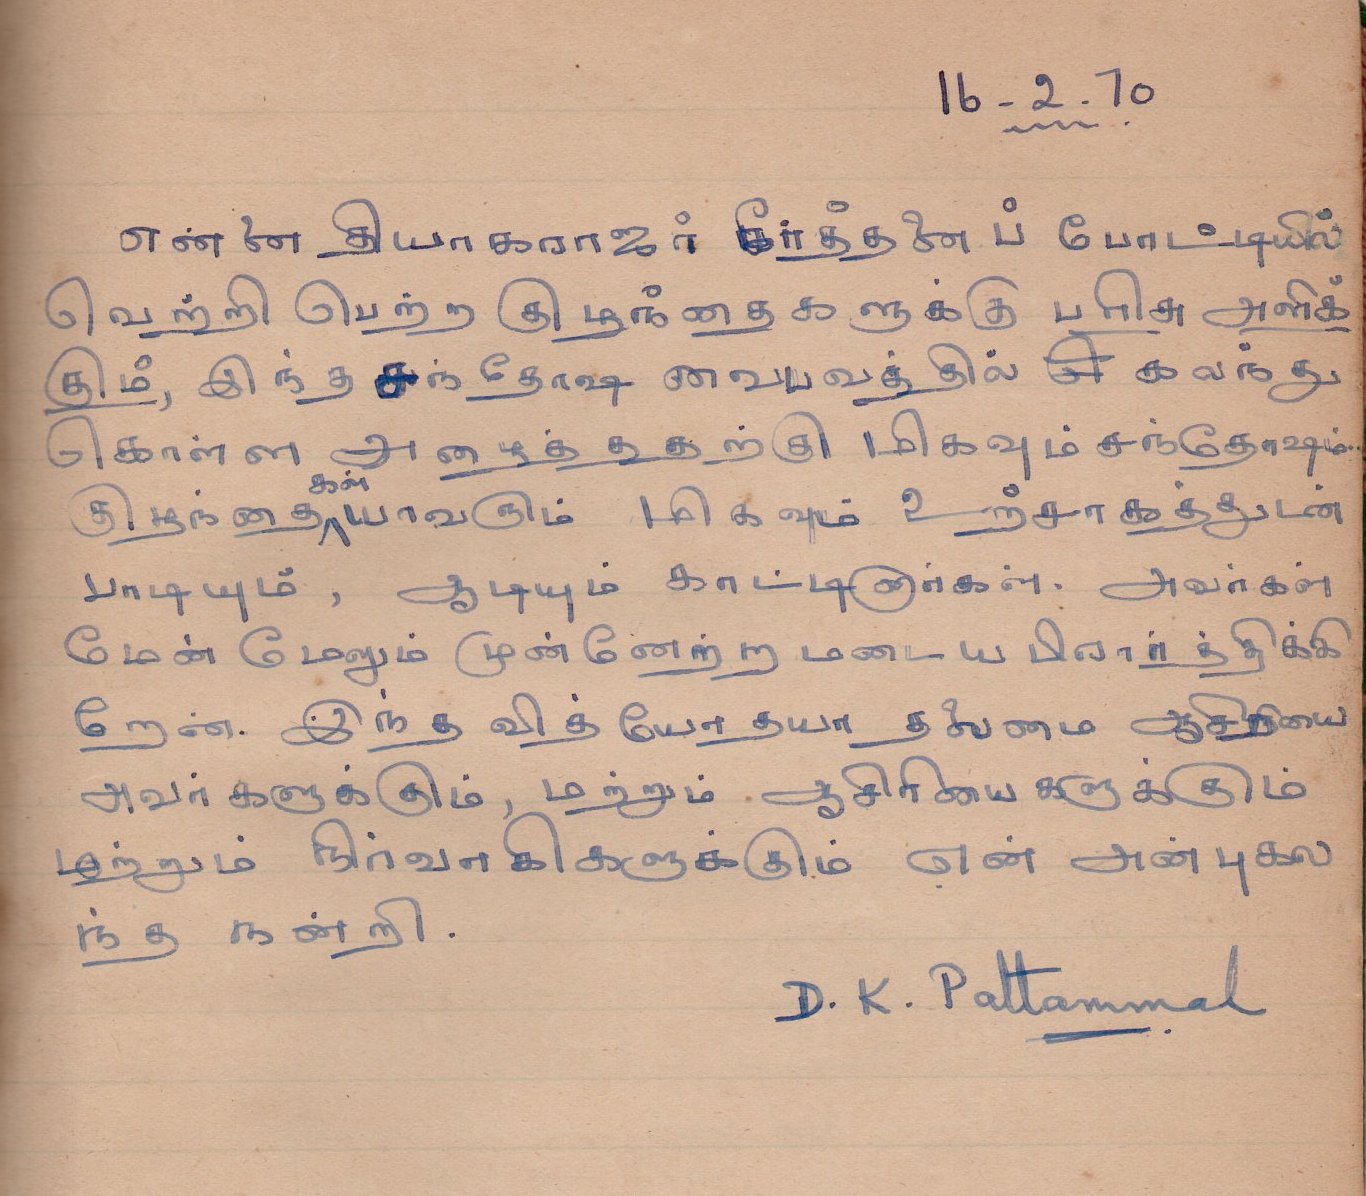 16-2-70
என்னை தியாகராஜர் கீர்த்தனைப் போட்டியில்
வெற்றி பெற்ற குழந்தைகளுக்கு பரிசு அளிக்
கும், இந்த சந்தோஷ வைபவத்தில் கலந்து
கொள்ள அழைத்ததற்கு மிகவும் சந்தோஷம்.
குழந்தைகள் யாவரும் மிகவும் உற்சாகத்துடன்
பாடியும், ஆடியும் காட்டினார்கள். அவர்கள்
மேன் மேலும் முன்னேற்ற மடைய பிரார்த்திக்கி
றேன். இந்த வித்யோதயா தலைமை ஆசிரியை
அவர்களுக்கும், மற்றும் ஆசிரியைகளுக்கும்
மற்றும் நிர்வாகிகளுக்கும் என் அன்புகல
ந்த நன்றி.
D. K. Pattammal